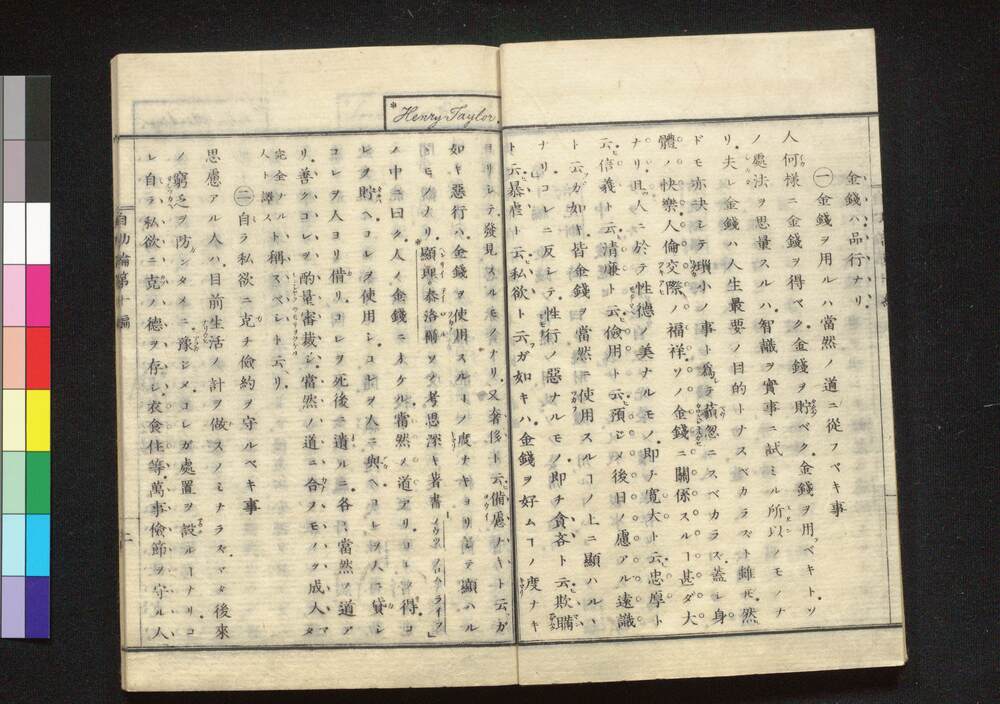 金錢ハ品行ナリ
㊀金錢ヲ用ルハ當然ノ道ニ從フベキ事
人何樣ニ金錢ヲ得ベク金錢ヲ貯ベク金錢ヲ用ベキトソ
ノ處法ヲ思量スルハ智識ヲ實事ニ試ミル所以ノモノナ
リ夫レ金錢ハ人生最要ノ目的トナスベカラズト雖モ然
ドモ亦決シテ瑣小ノ事ト爲テ藐忽ニスベカラズ蓋シ身
體ノ快樂人倫交際ノ福祥ソノ金錢ニ關係スルヿ甚ダ大
ナリ且人ニ於テ性德ノ美ナルモノ即チ寬大ト云忠厚ト
云信義ト云清廉ト云儉用ト云預ジメ後日ノ慮アル遠識
ト云ガ如キ皆金錢ヲ當然ニ使用スルヿノ上ニ顯ハルヽ
ナリコレニ反シテ性行ノ惡ナルモノ即チ貪吝ト云欺騙
ト云暴虐ト云私欲ト云ガ如キハ金錢ヲ好ムヿノ度ナキ
*Henry Taylor.
ヨリシテ發見スルモノナリ又奢侈ト云備慮ナキト云ガ
如キ惡行ハ金錢ヲ使用スルヿノ度ナキヨリシテ顯ハル
ヽモノナリ*顯理泰洛爾ソノ考思深キ著書ノウツ フロム ライフ
ノ中ニ曰ク人ノ金錢ニ於ケル當然ノ道アリコレヲ得コ
レヲ貯ヘコレヲ使用シコレヲ人ニ與ヘコレヲ人ニ貸シ
コレヲ人ヨリ借リコレヲ死後ニ遺ルニ各當然ノ道ア
リ善クコレヲ酌量審裁シ當然ノ道ニ合フモノヲ成人マタ
完全ナル人ト譯スト稱スベシト云リ
㊁自ラ私欲ニ克チ儉約ヲ守ルベキ事
思慮アル人ハ目前生活ノ計ヲ做スノミナラズマタ後來
ノ窮乏ヲ防ンタメニ豫ジメコレガ處置ヲ設ルヿナリコ
レ自ラ私欲ニ克ノ德ヲ存シ衣食住等萬事儉節ヲ守ル人
自助論第十編